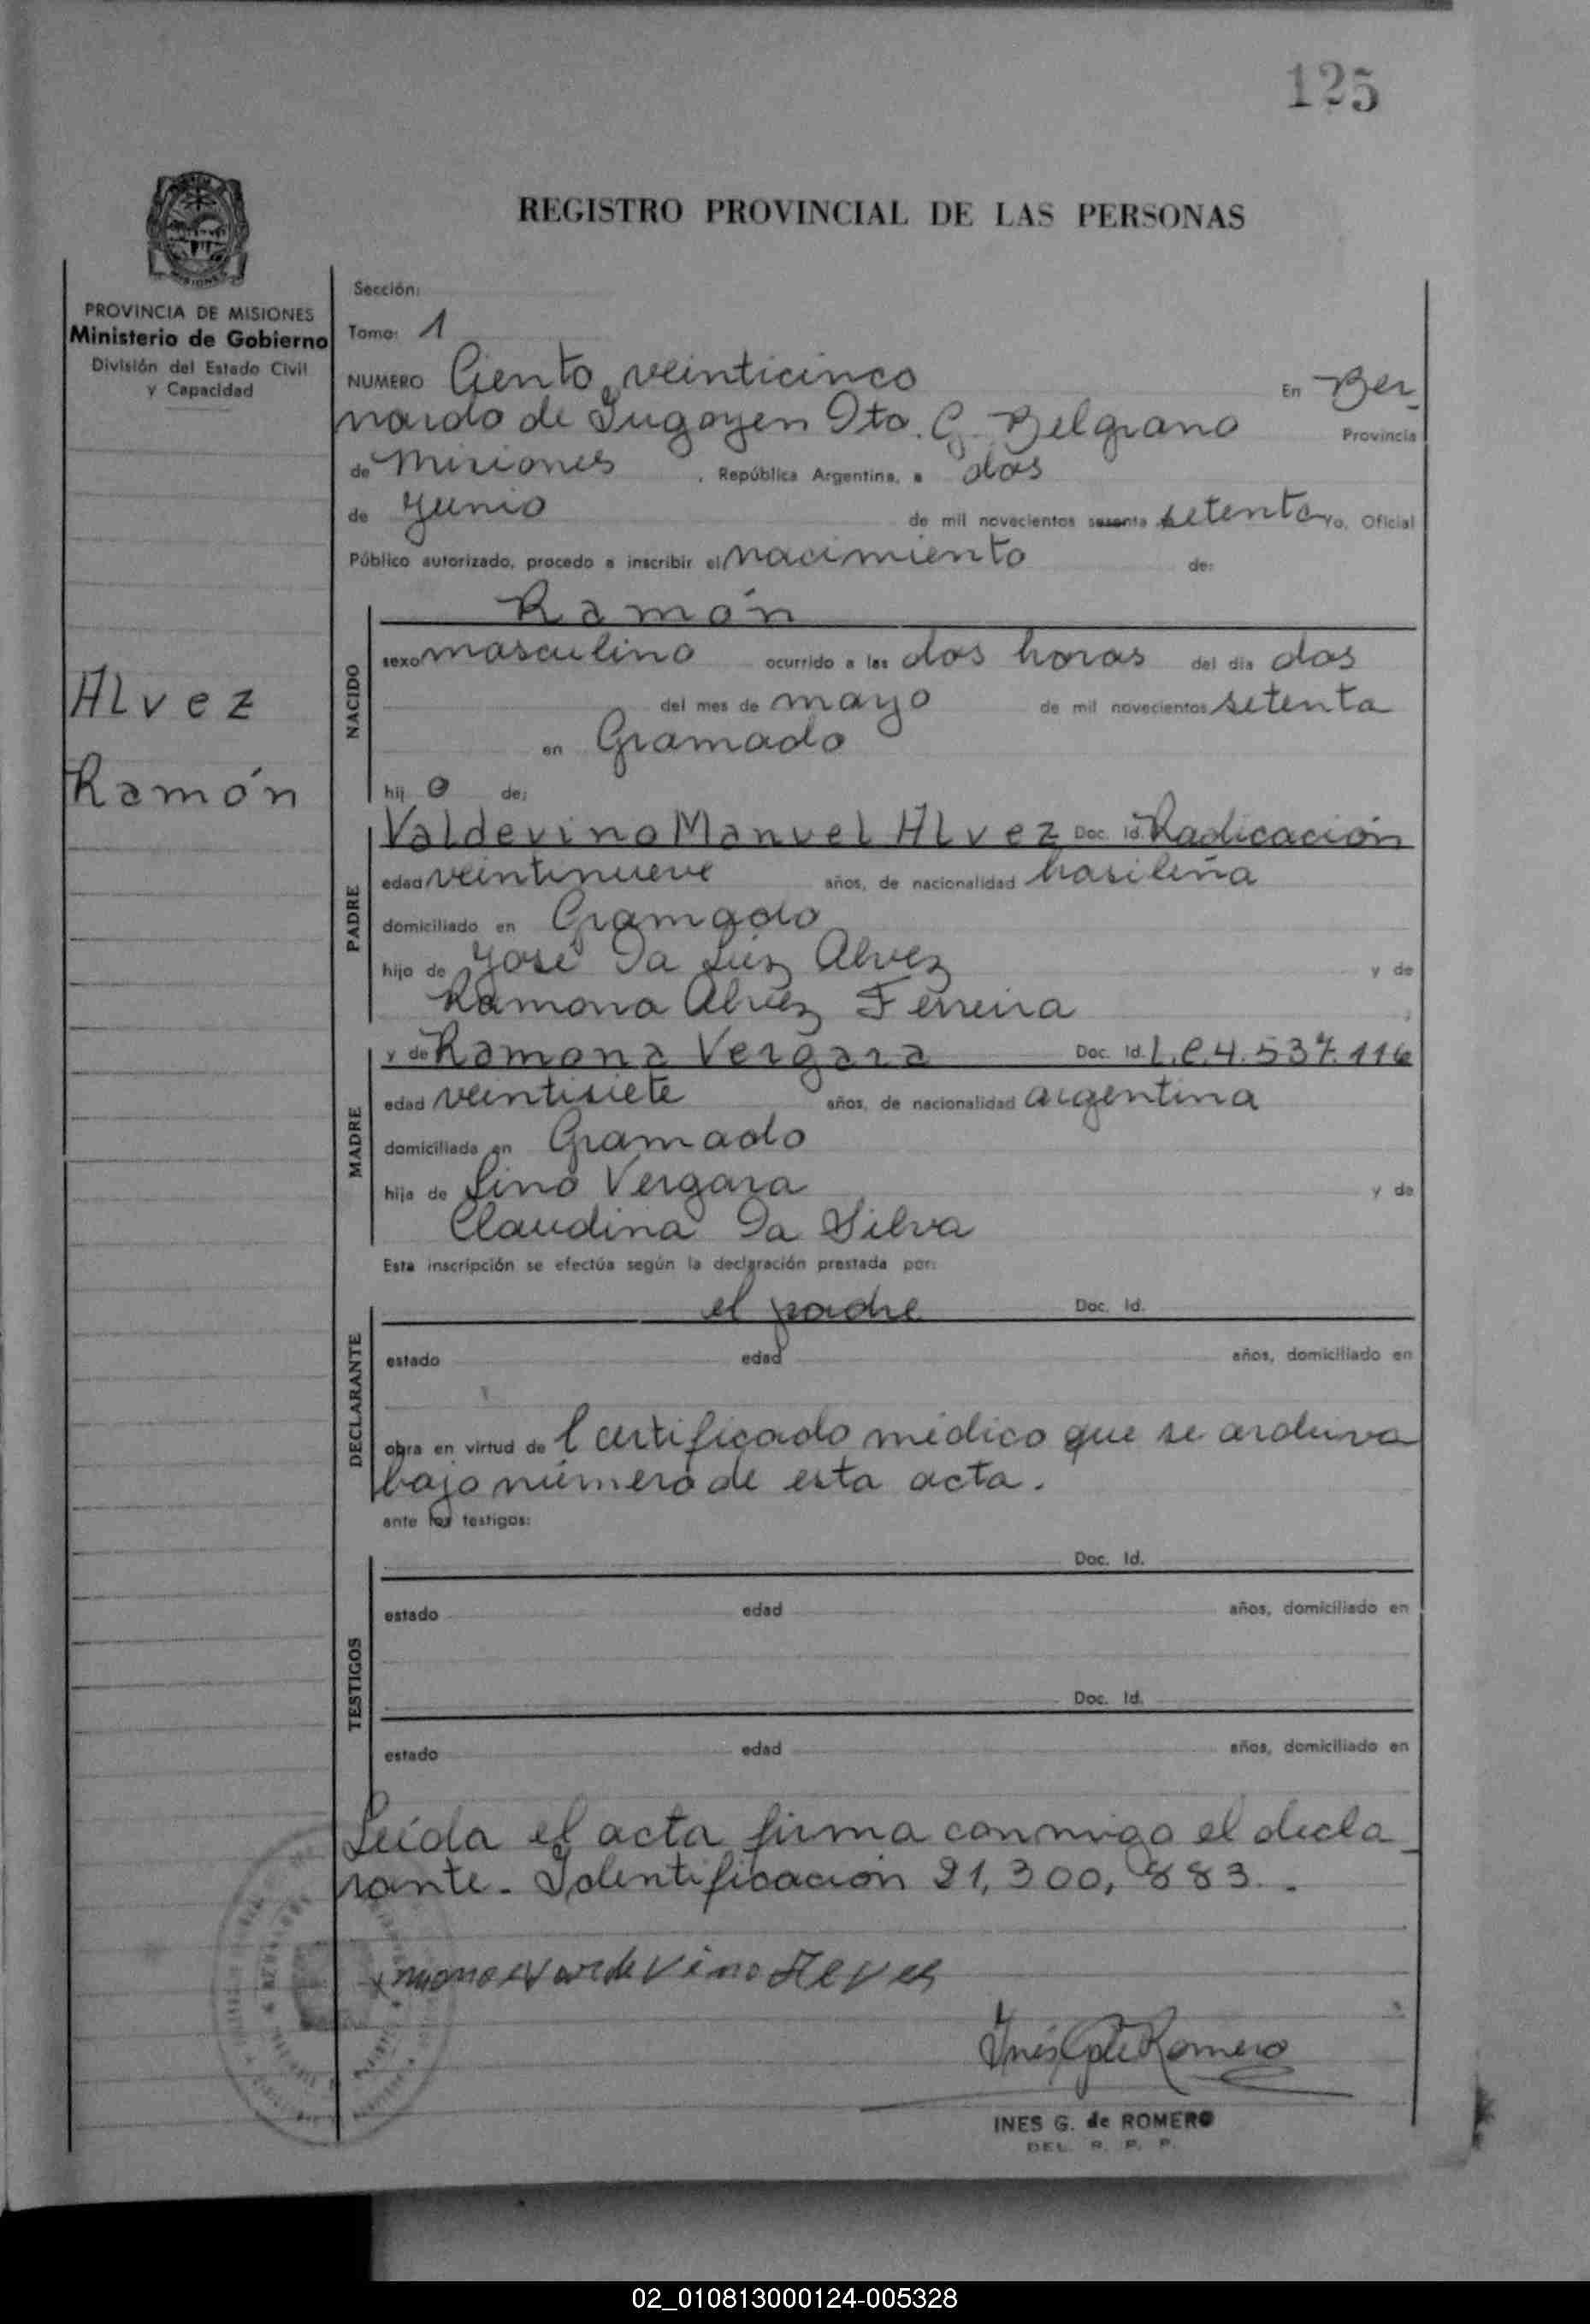 125
REGISTRO PROVINCIAL DE LAS PERSONAS
PROVINCIA DE MISIONES
Ministerio de Gobierno
División del Estado Civil
y Capacidad
Alvez
Ramón
Sección:
Tomo: 1
NUMERO Ciento veinticinco En Ber-
nardo de Irigoyen Dto. G. Belgrano Provincia
de Misiones, República Argentina, a dos
de Junio de mil novecientos sesenta setenta Yo, Oficial
Público autorizado, procedo a inscribir el nacimiento de:
NACIDO
Ramón
sexo masculino ocurrido a las dos horas del día dos
del mes de mayo de mil novecientos setenta
en Gramado
hij o de:
PADRE
Valdevino Manuel Alvez Doc. Id. Radicación
edad veintinueve años, de nacionalidad brasileña
domiciliado en Gramado
hijo de José Da Luz Alvez y de
Ramona Alvez Ferreira
MADRE
y de Ramona Vergara Doc. Id. L.C. 4.537.116
edad veintisiete años, de nacionalidad argentina
domiciliada en Gramado
hija de Lino Vergara y de
Claudina Da Silva
Esta inscripción se efectúa según la declaración prestada por:
DECLARANTE
el padre Doc. Id.
estado edad años, domiciliado en
obra en virtud de Certificado médico que se archiva
bajo número de esta acta.
ante los testigos:
TESTIGOS
Doc. Id.
estado edad años, domiciliado en
Doc. Id.
estado edad años, domiciliado en
Leída el acta firma conmigo el decla-
rante. Identificación 21,300,883.-
Inés G de Romero
INES G. de ROMERO
DEL. R. P. P.
02_010813000124-005328